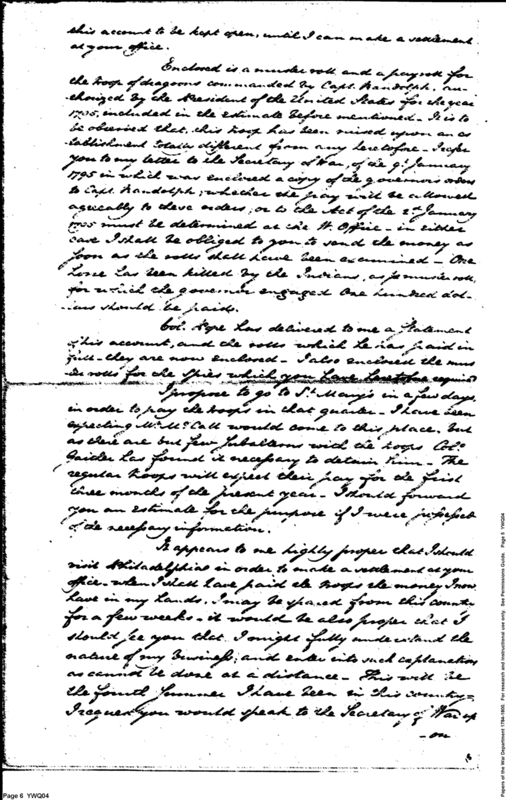 this account to be kept open, until I can make a settlement
at your office.
Enclosed is a muster roll and a pay roll for
the troop of dragoons commanded by Capt. Randolph, au-
thorized by the President of the United States for the year
1795, included in the estimate before mentioned - It is to
be observed that this troop has been raised upon an es
tablishment totally different from any heretofore - I refer
you to my letter to the Secretary of War, of the 9th January
1795 in which was enclosed a copy of the governors orders
to Capt. Randolph; whether the pay will be allowed
agreeably to these orders, or to the Act of the 2d January
1795 must be determined at the W. Office - in either
case I shall be obliged to you to send the money as
soon as the rolls shall have been examined - One
horse has been killed by the Indians, as p muster roll,
for which the governor engaged One hundred dol-
lars should be paid.
Col. has delivered to me a Statement
of his account, and the rolls which he has paid in
full - they are now enclosed - I also enclosed the mus
ter rolls for the Spies which you have heretofore required
I propose to go to St. Mary's in a few days
in order to pay the troops in that quarter - I have been
expecting Mr. McCall would come to this place, but
as there are but few Subalterns with the troops Colo.
Gaither has found it necessary to detain him - The
regular troops will expect their pay for the first
three months of the present year - I should forward
you an estimate for the purpose if I were possessed
of the necessary information.
It appears to me highly proper that I should
visit Philadelphia in order to make a settlement at your
office - when I shall have paid the troops the money I now
have in my hands, I may be spared from this country
for a few weeks - it would be also proper that I
should see you that I might fully understand the
nature of my business; and enter into such explanations
as cannot be done at a distance - This will be
the fourth Summer I have been in this country -
I request you would speak to the Secretary of War up
- on
Page 6 YWQ04
Papers of the War Department 1784-1800. For research and instructional use only. See Permissions Guide. Page 6 YWQ04